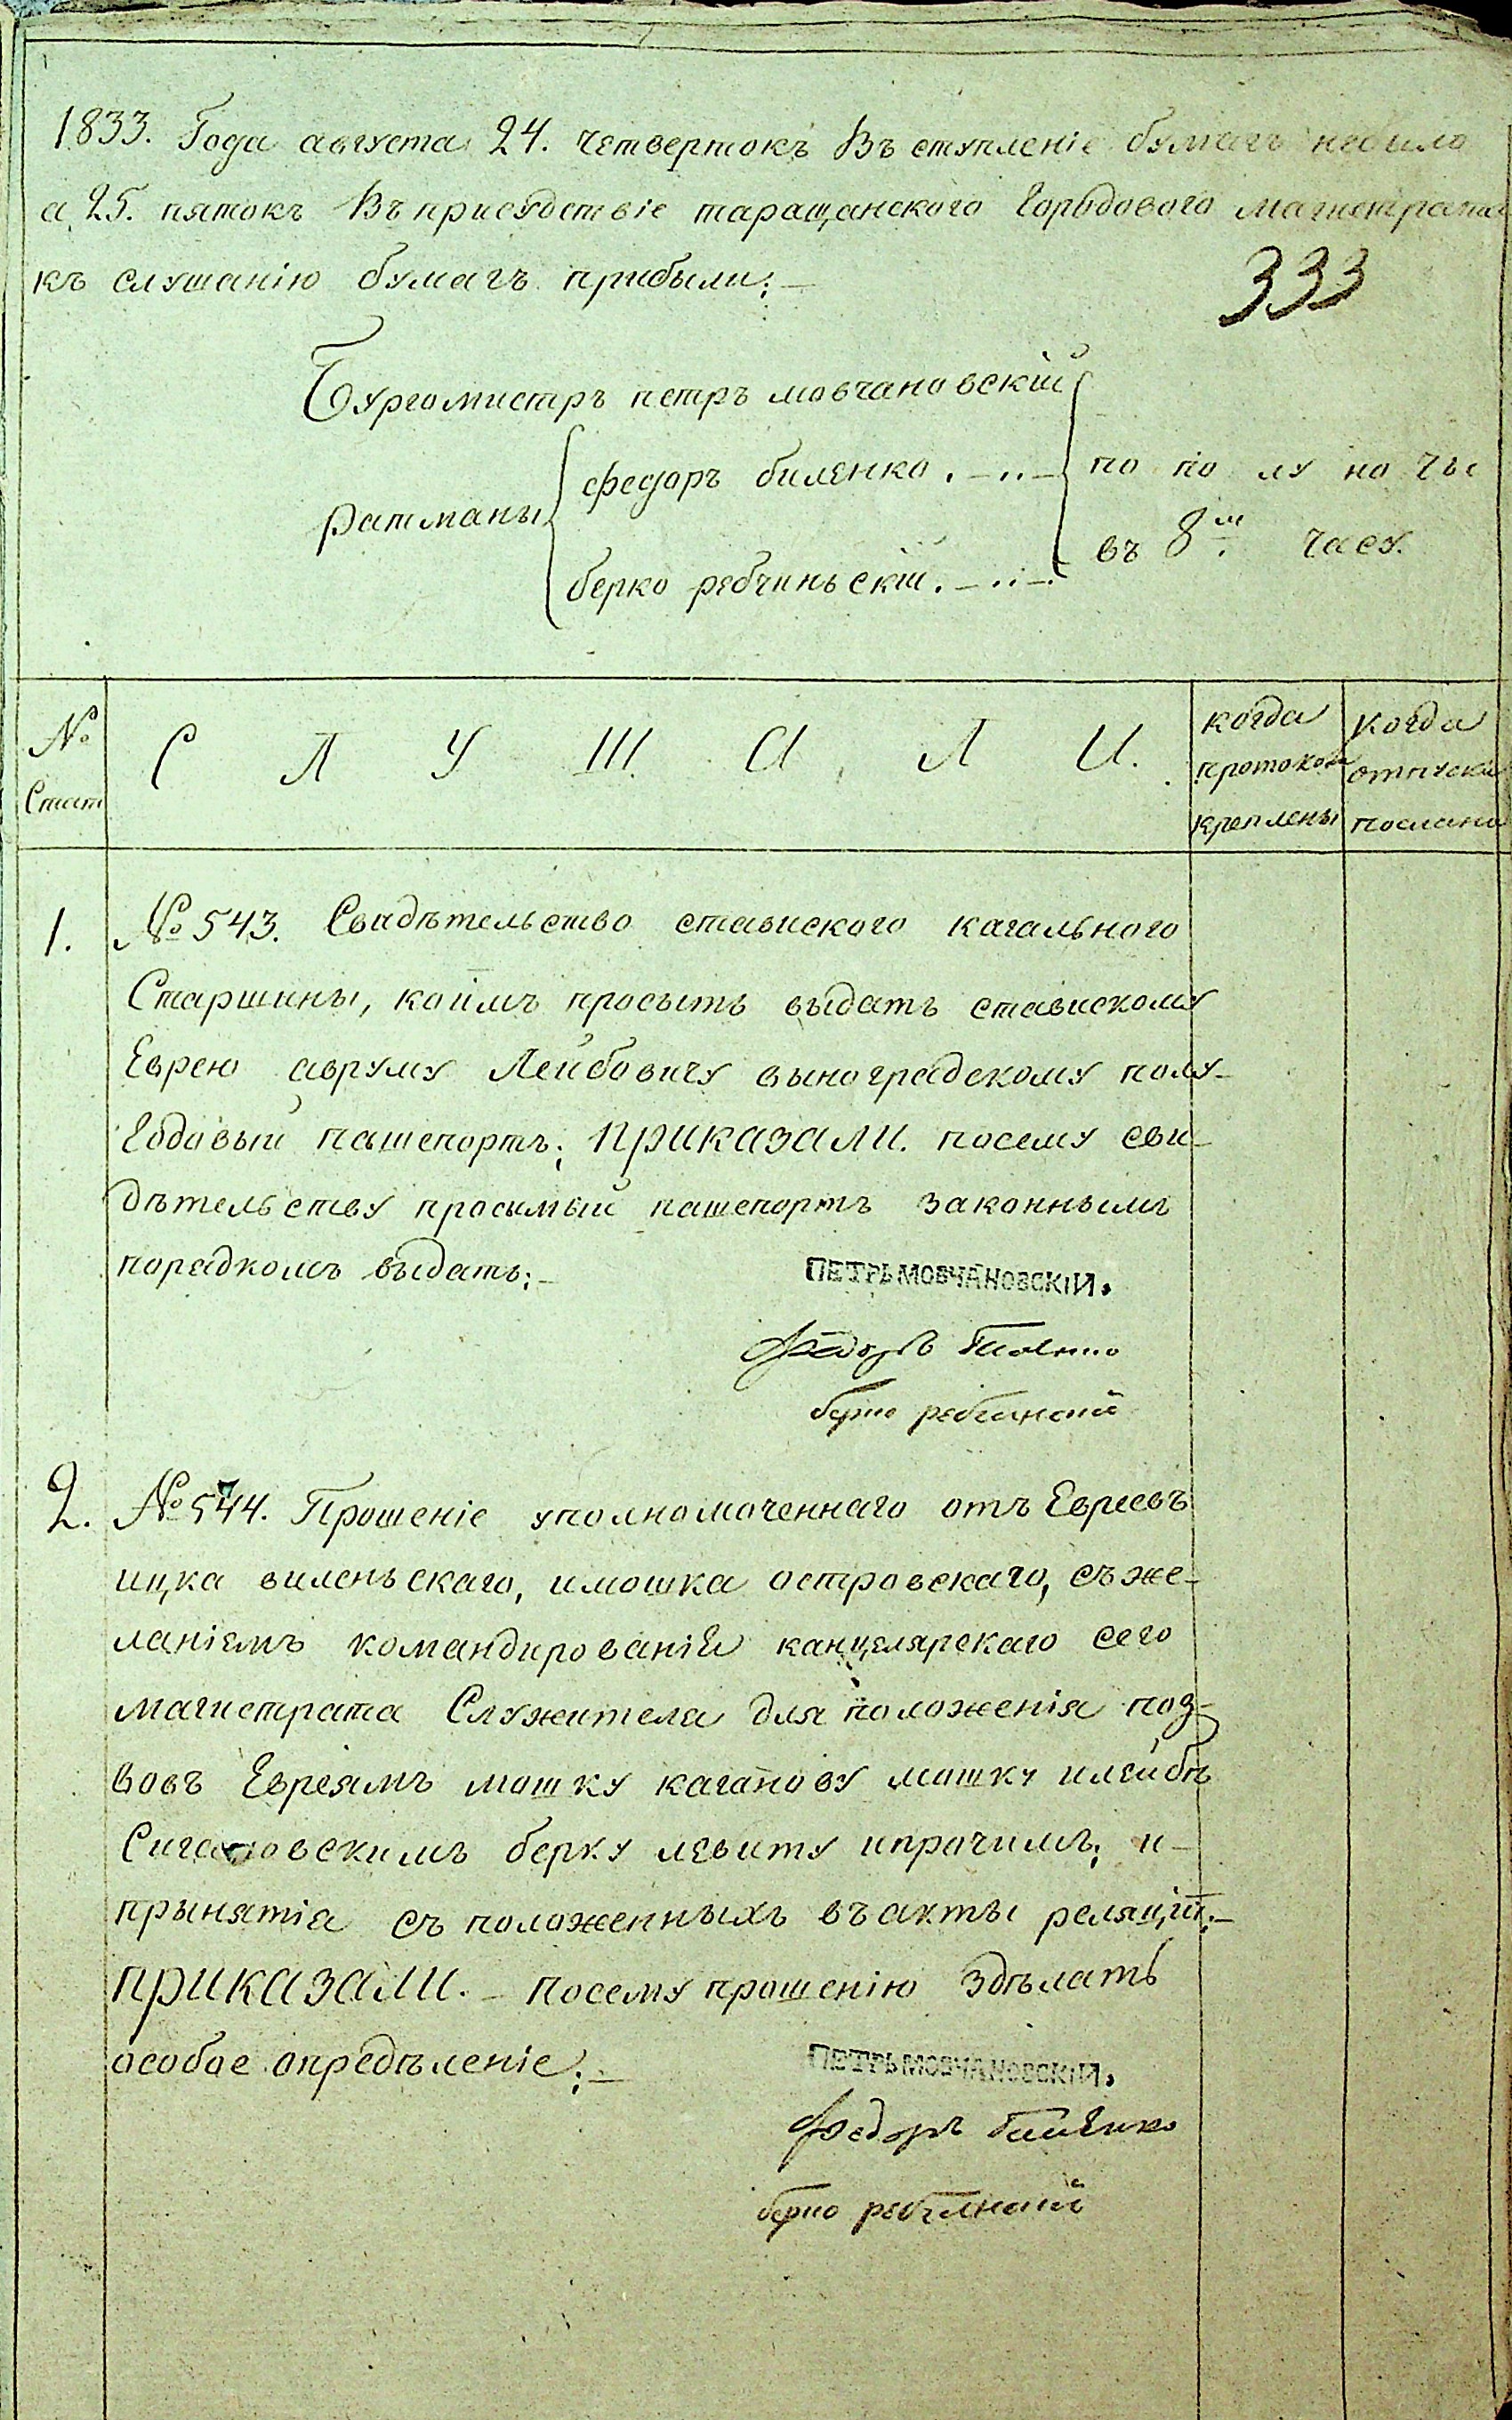 1833. Года августа 24. четвертокъ Въ ступленіе бумагъ небыло
а 25. пятокъ Въ присудствіе таращанского Городового магистрата
къ слушанію бумагъ прибыли;
333
Бургомистръ петръ мовчановскій
Ратманы
федоръ биленко
берко ребчиньскій
по по лу но чы
въ 8м часу.
№ Стат
С Л У Ш А Л И.
когда протокол креплены
Когда отпуски посланы
1. №543. Свидѣтельство ставиского кагального
Старшины, коимъ просытъ выдать ставискому
Еврею авруму Лейбовичу выноградскому полу-
Годовый пашепортъ; приказали. посему сви-
дѣтельству просымый пашепортъ законнымъ
порядкомъ выдать;
ПЕТРЪ МОВЧАНОВСКІЙ.
Федоръ Биленко
берко ребчинскій
2. №544. Прошеніе уполномоченнаго отъ Евреевъ
ицка виленьскаго, имошка островскаго, съ же-
ланіемъ командированіи канцелярскаго сего
магистрата Служителя для положенія поз-
вовъ Евреямъ мошку каганову мошку илейбѣ
берку левиту ипрочимъ; и
прынятія съ положенныхъ въ акты реляцій;
приказали. посему прошенію здѣлать
особое опредѣленіе;
ПЕТРЪ МОВЧАНОВСКІЙ.
Федоръ Биленко
берко ребчинскій